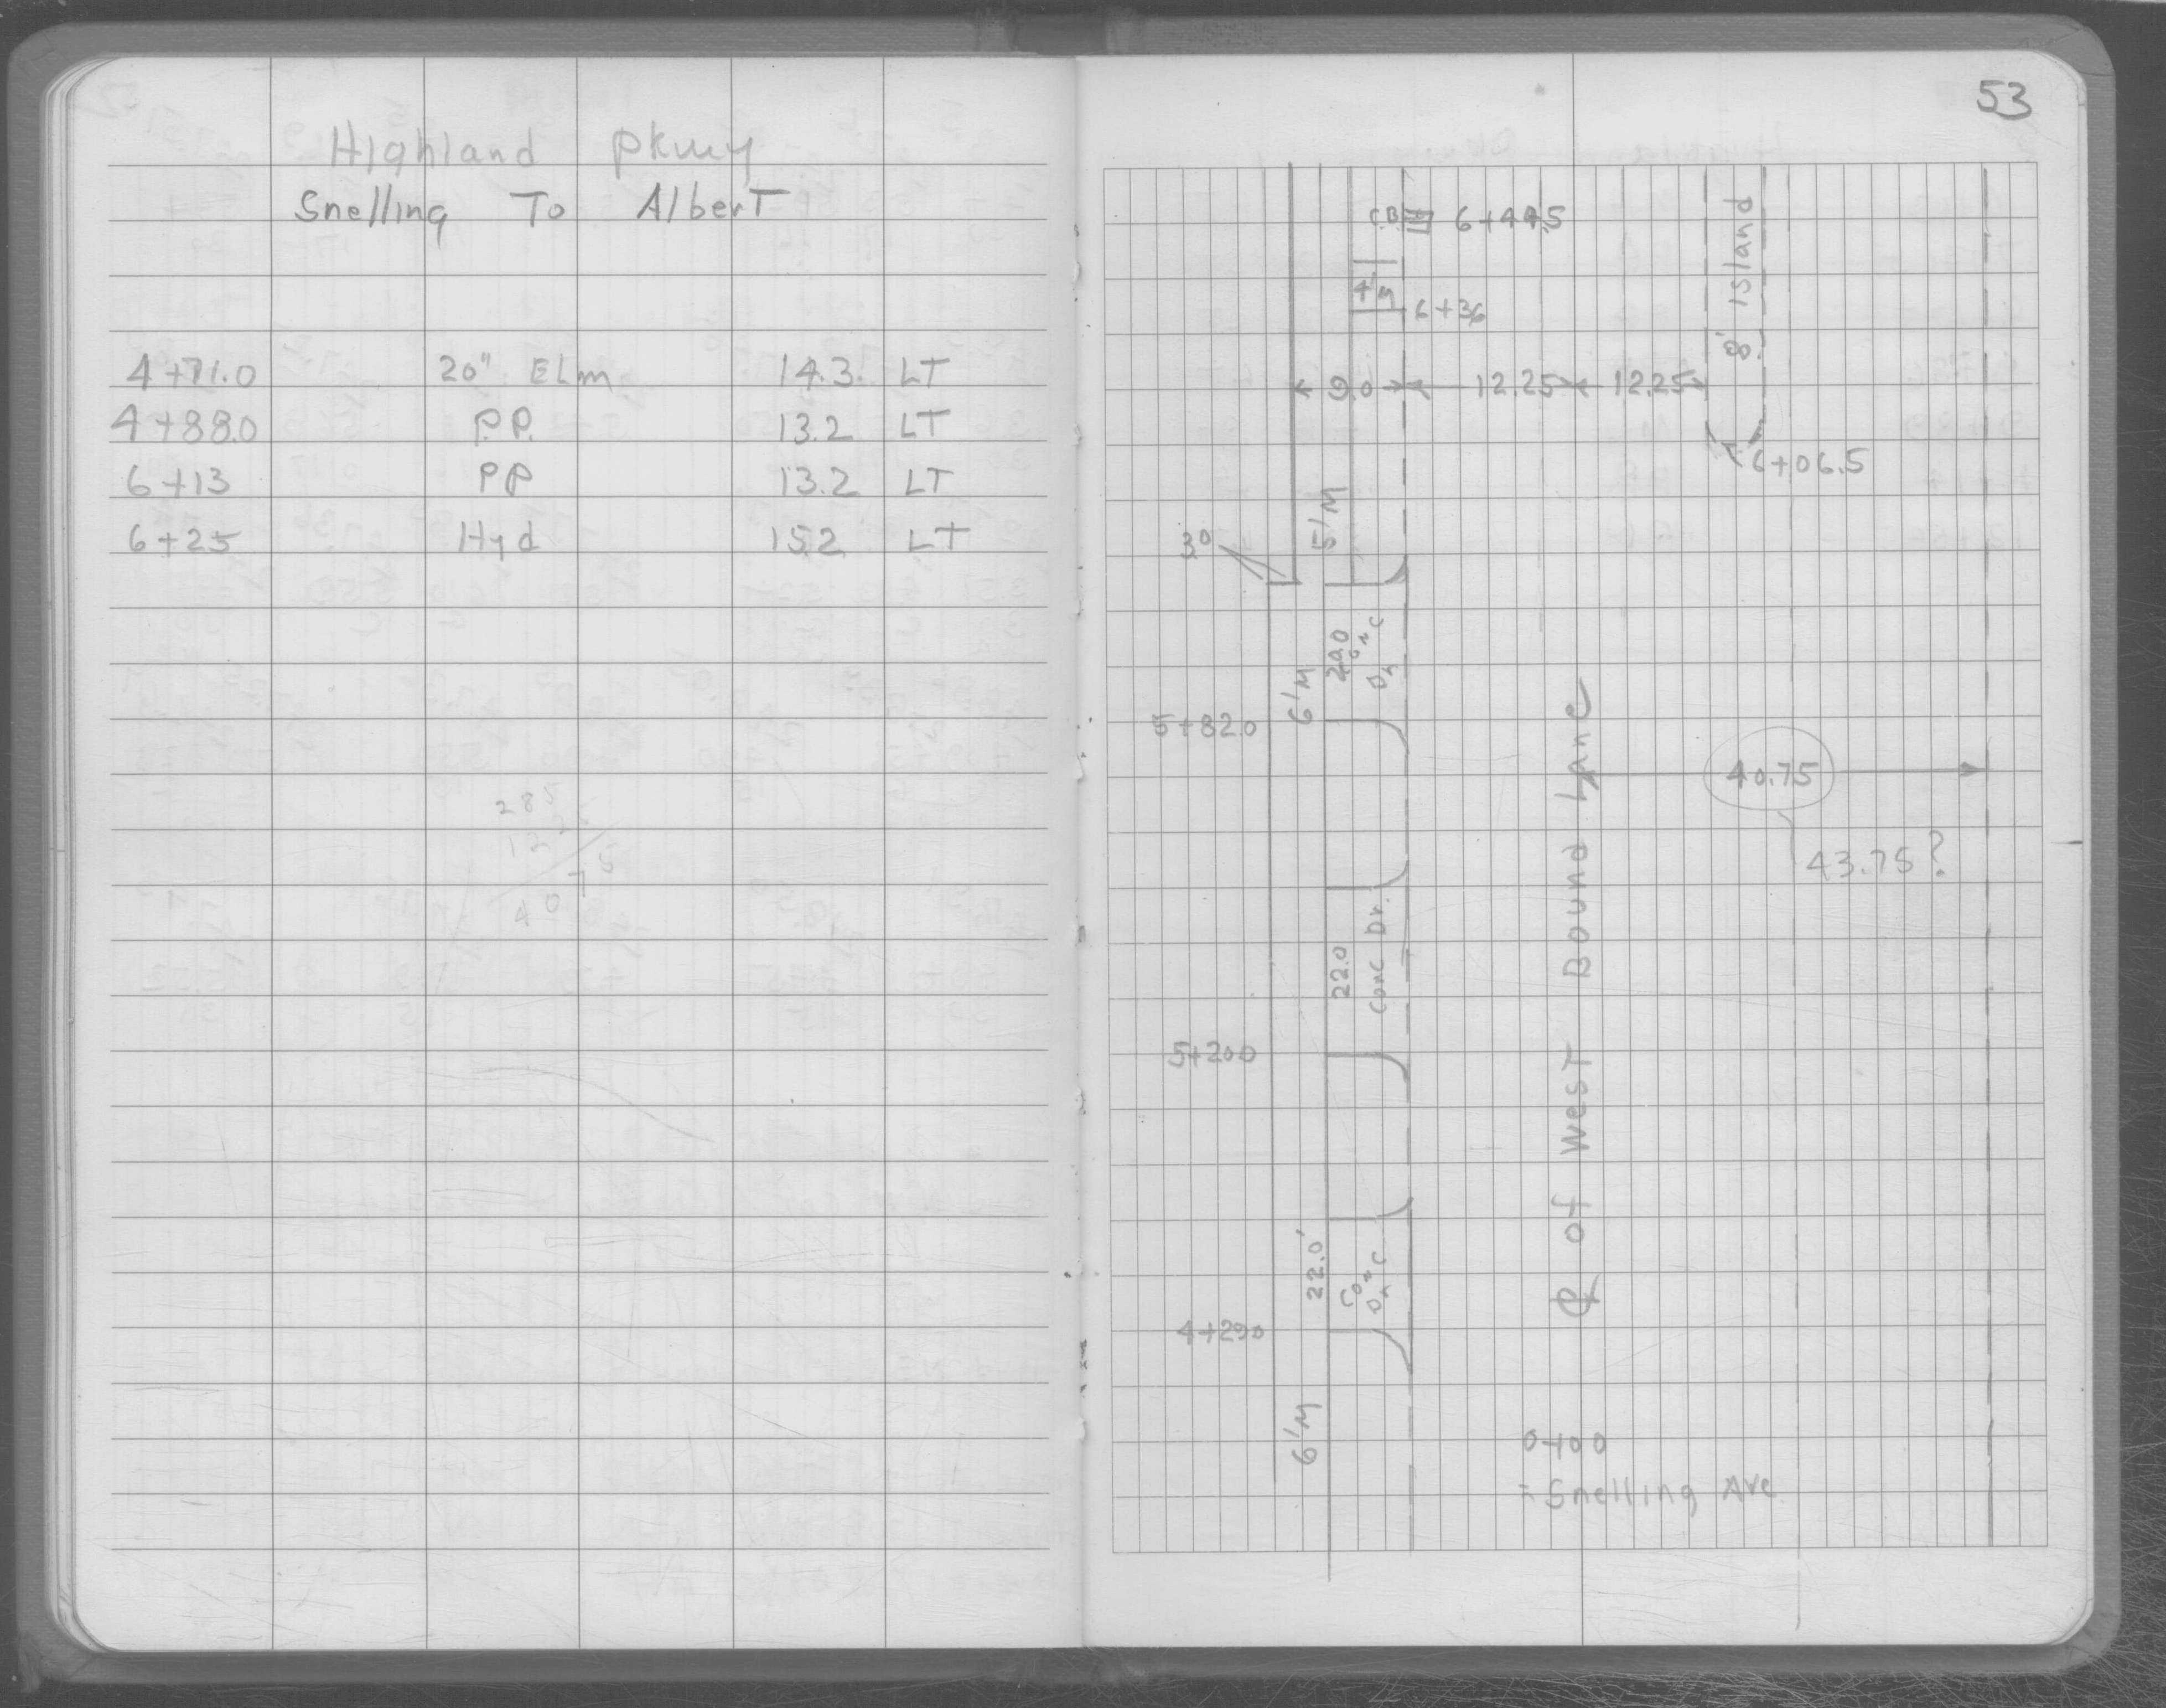 Highland Pkwy
Snelling To Albert
4+71.0 20" Elm 14.3 LT
4+88.0 P.P. 13.2 LT
6+13 PP 13.2 LT
6+25 Hyd 15.2 LT
28 5
4 0 7 5
53
C.B. 6+44.5
8' Island
6+36
9.0 12.25 12.25
6+06.5
5'M
3.0
20.0
Conc
Dr
6'M
5+82.0
40.75
43.75?
22.0
Conc Dr.
5+20.0
℄ of West Bound Lane
22.0'
Conc
Dr
4+29.0
6'M
0+00
= Snelling Ave